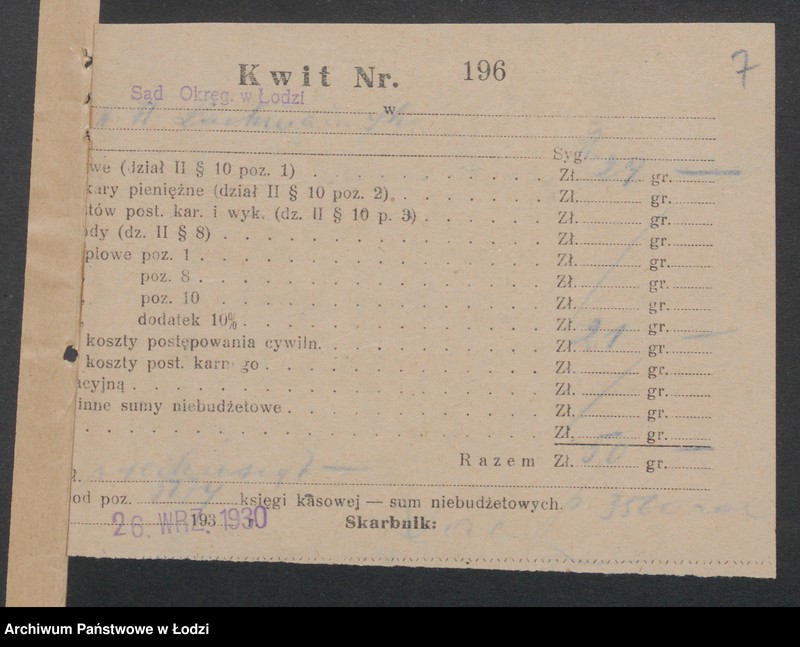 Kwit Nr. 196 7
Sąd Okręg. w Łodzi
w
Syg.
we (dział II § 10 poz. 1) . . . Zł. 27 gr. —
kary pieniężne (dział II § 10 poz. 2) . . . Zł. gr.
tów post. kar. i wyk. (dz. II § 10 p. 3) . . . Zł. gr.
dy (dz. II § 8) . . . Zł. gr.
plowe poz. 1 . . . Zł. gr.
poz. 8 . . . Zł. gr.
poz. 10 . . . Zł. gr.
dodatek 10% . . . Zł. gr.
koszty postępowania cywiln. . . . Zł. 21 gr. —
koszty post. karnego . . . Zł. gr.
cyjną . . . Zł. gr.
inne sumy niebudżetowe . . . Zł. gr.
. . . Zł. gr.
Razem Zł. 50 gr. —
ł.
od poz. księgi kasowej — sum niebudżetowych.
26. WRZ. 1930 193 Skarbnik:
Archiwum Państwowe w Łodzi